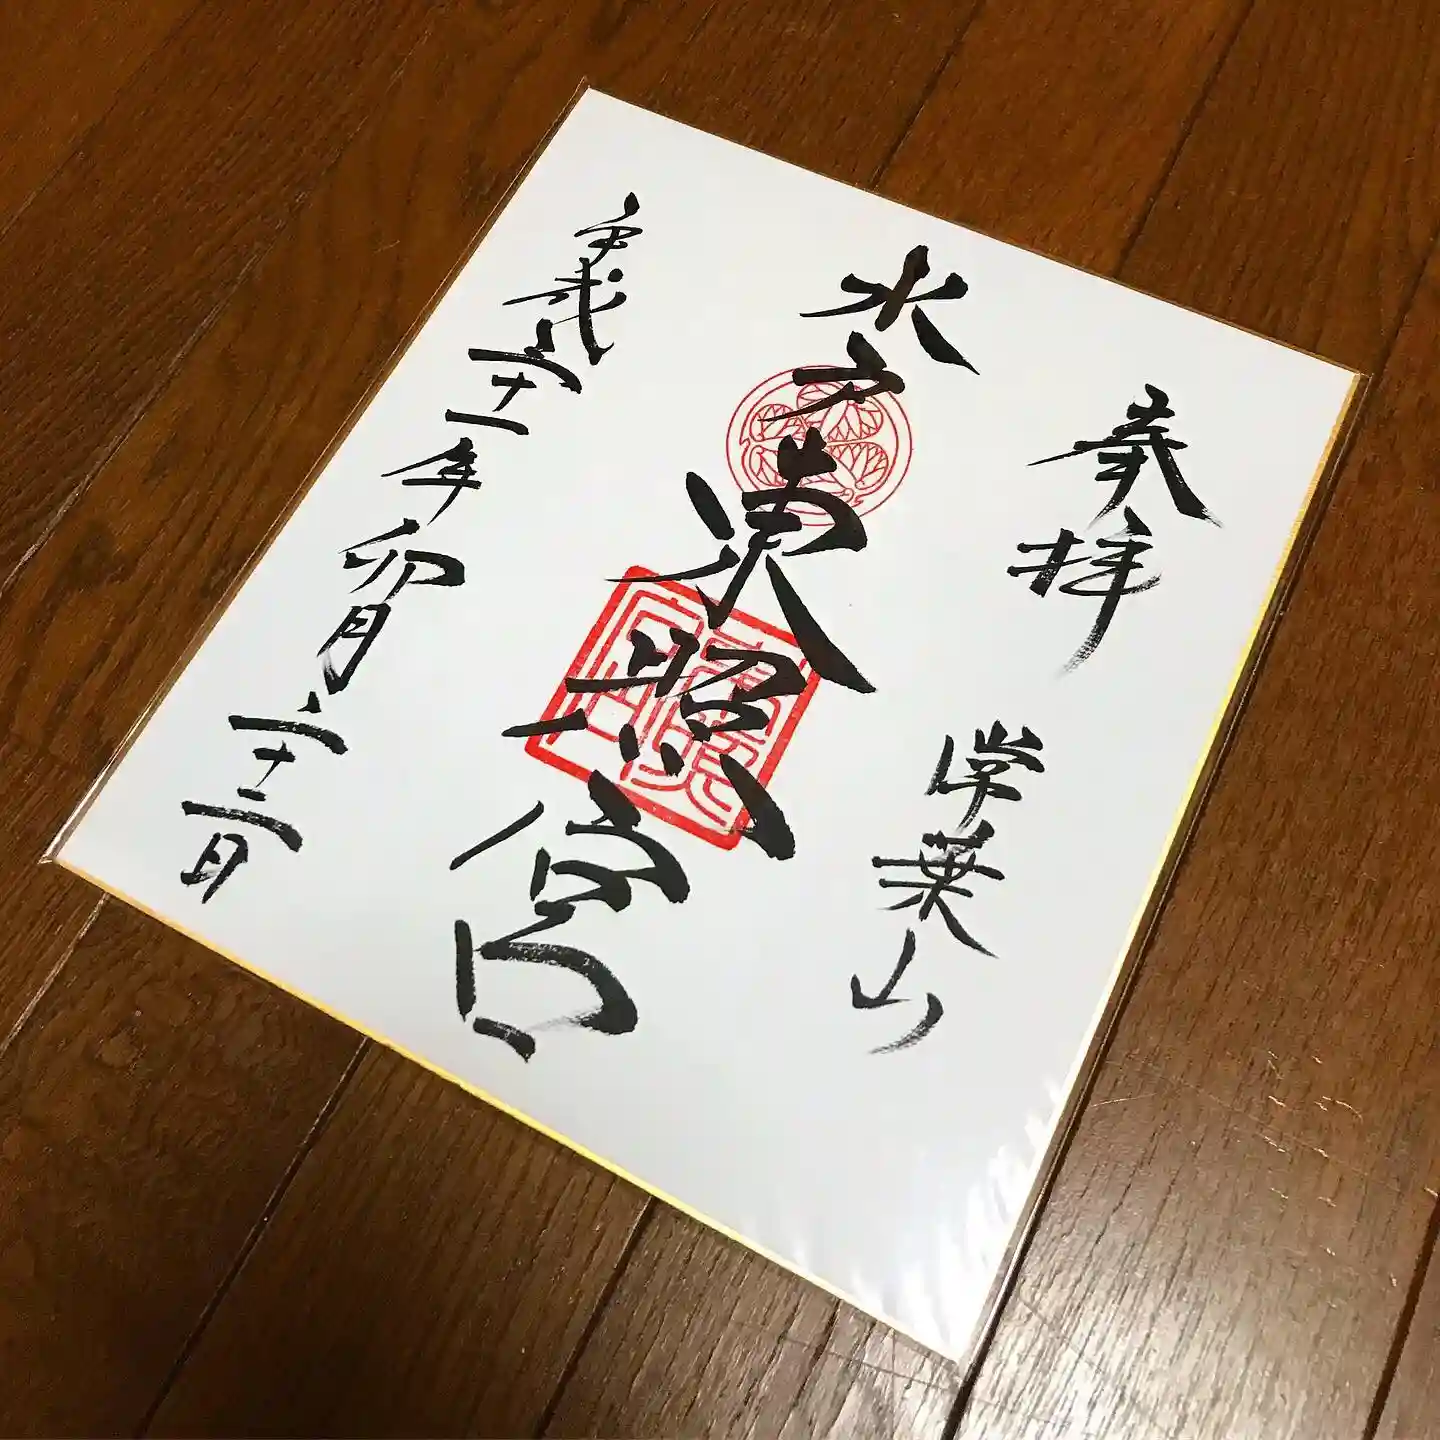 奉拝
常葉山
水戸東照宮
平成三十一年卯月二十二日